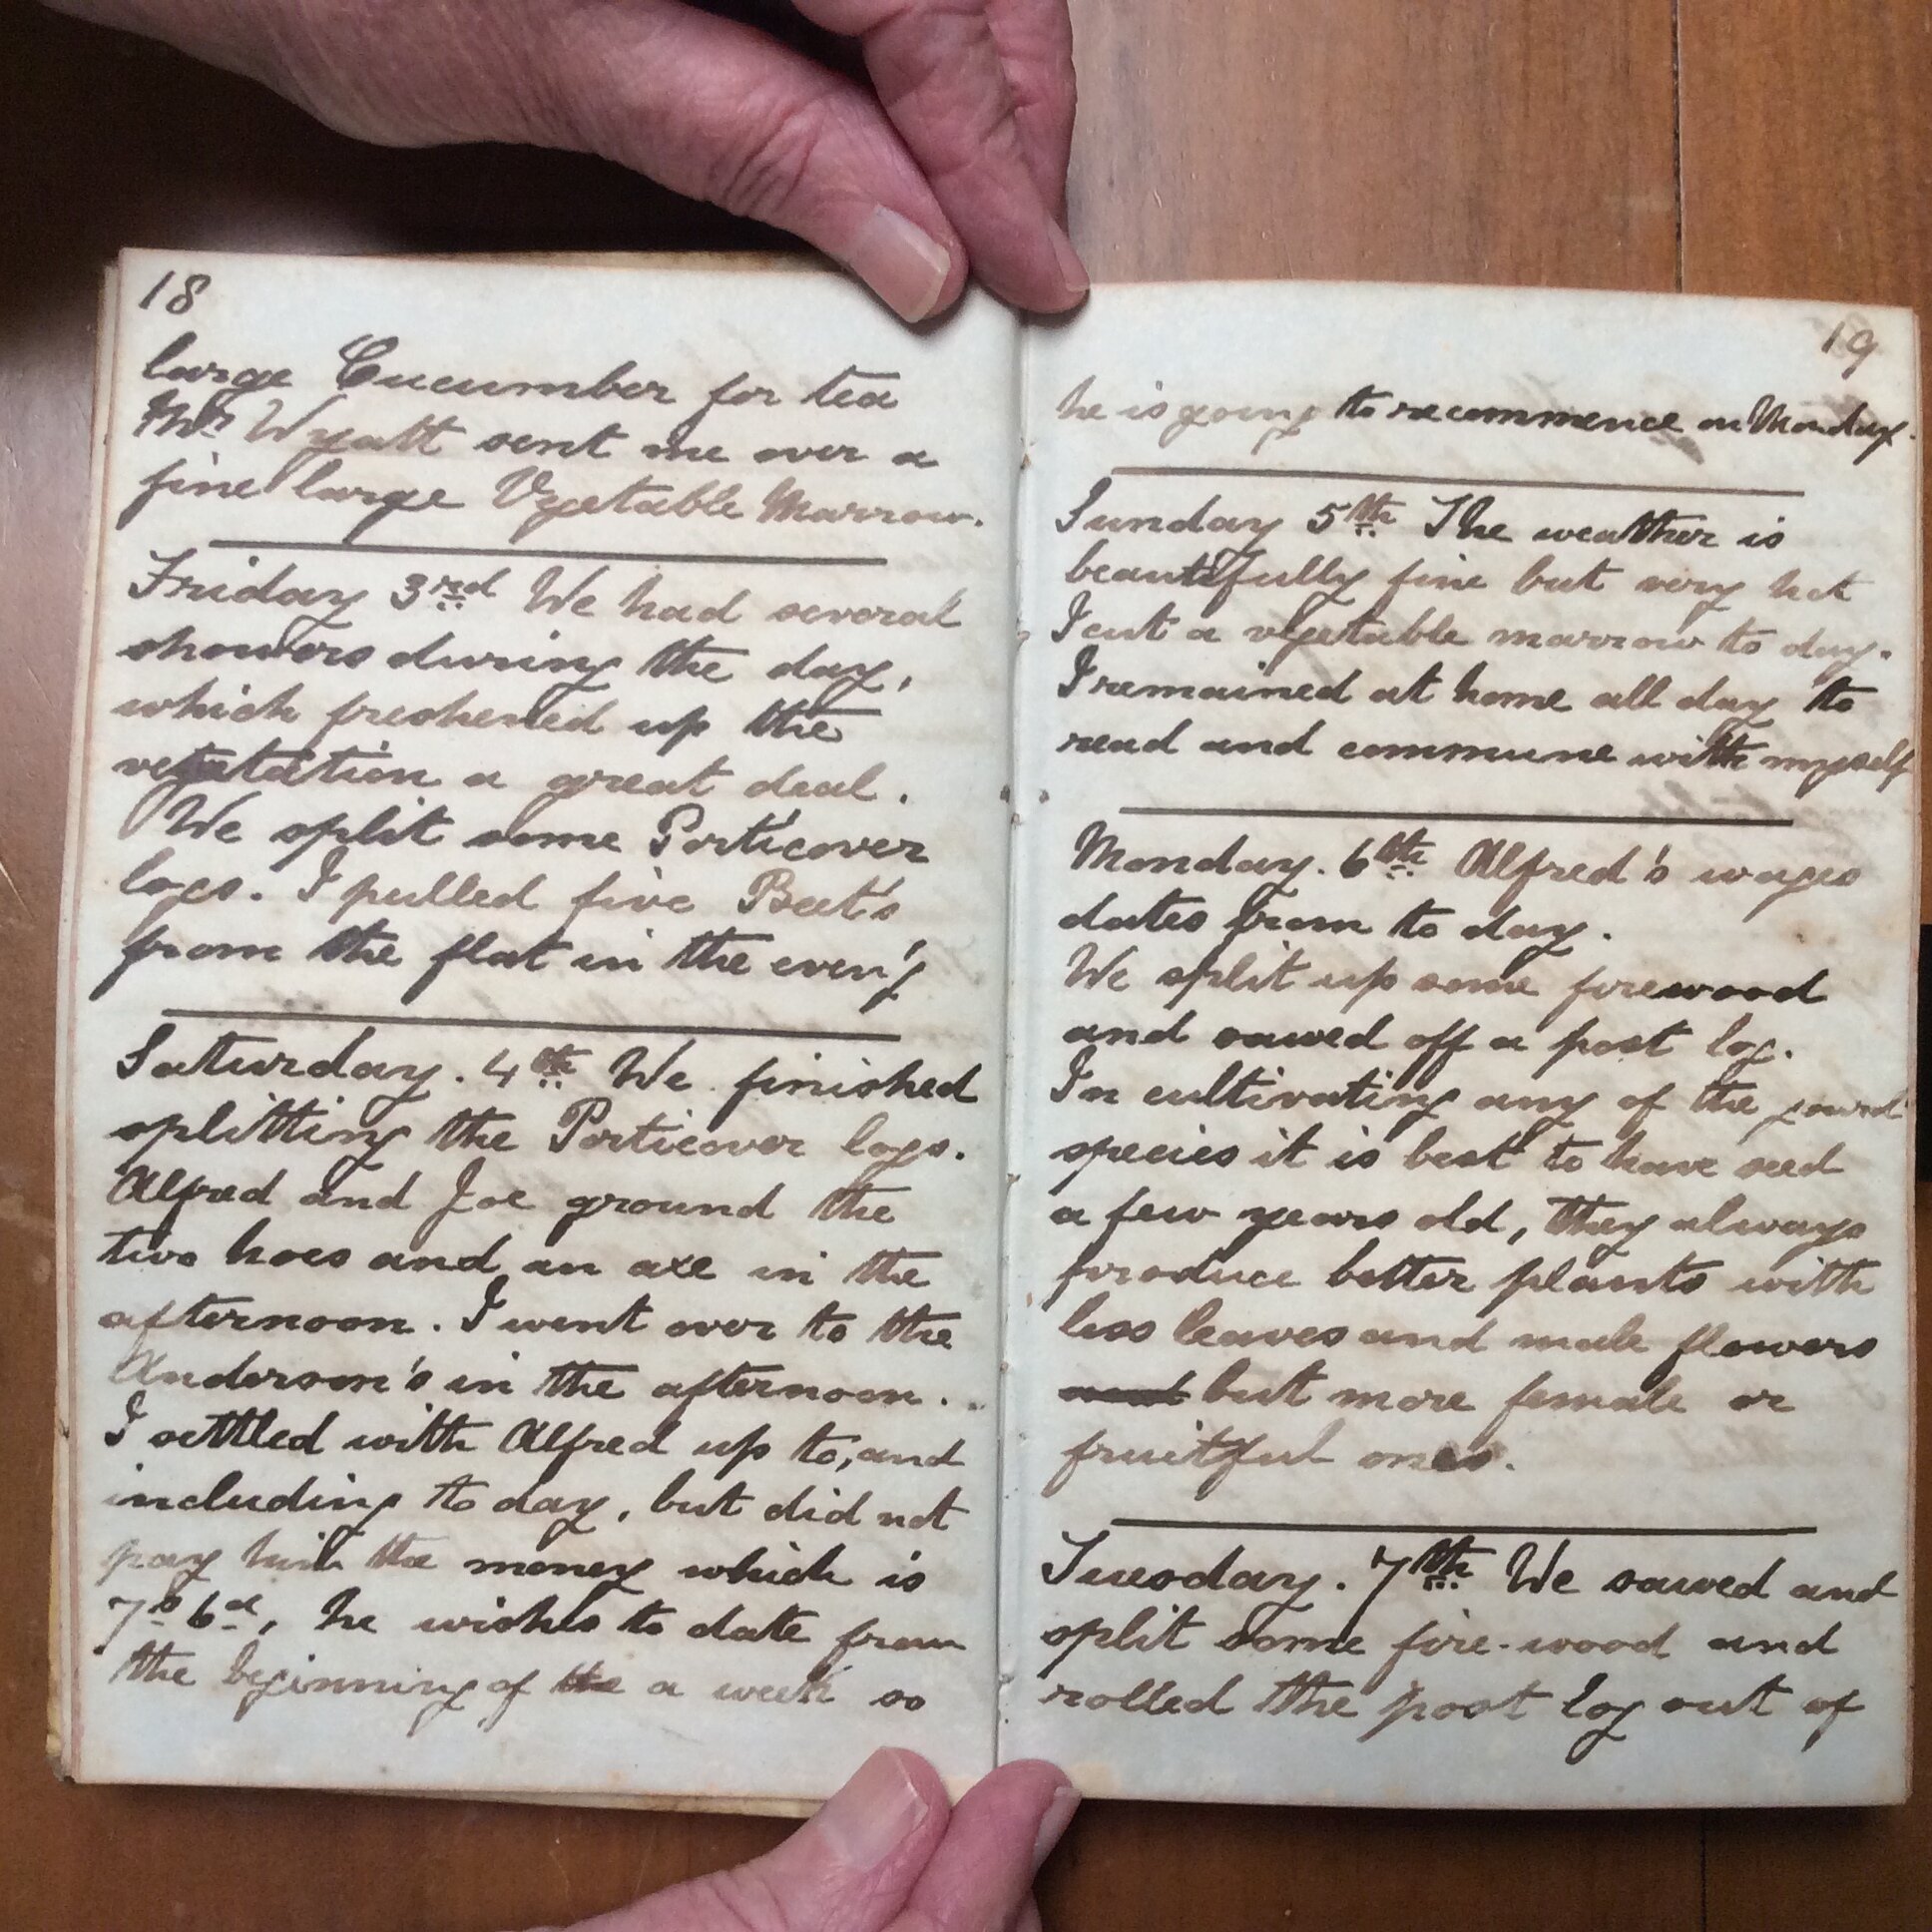 18
large Cucumber for tea
Mr. Wyatt sent me over a
fine large Vegetable Marrow.
Friday 3rd We had several
showers during the day,
which freshened up the
vegetation a great deal.
We split some Porticover
logs. I pulled five Beet's
from the flat in the even'g
Saturday. 4th We finished
splitting the Porticover logs.
Alfred and Joe ground the
two hoes and an axe in the
afternoon. I went over to the
Anderson's in the afternoon.
I settled with Alfred up to, and
including to day, but did not
pay him the money which is
7s 6d, he wishes to date from
the beginning of the a week so
19
he is going to recommence on Monday.
Sunday 5th The weather is
beautifully fine but very hot
I cut a vegetable marrow to day.
I remained at home all day to
read and commune with myself
Monday. 6th Alfred's wages
dates from to day.
We split up some firewood
and sawed off a post log.
In cultivating any of the gourd
species it is best to have seed
a few years old, they always
produce better plants with
less leaves and male flowers
and but more female or
fruitful ones.
Tuesday. 7th We sawed and
split some fire-wood and
rolled the post log out of